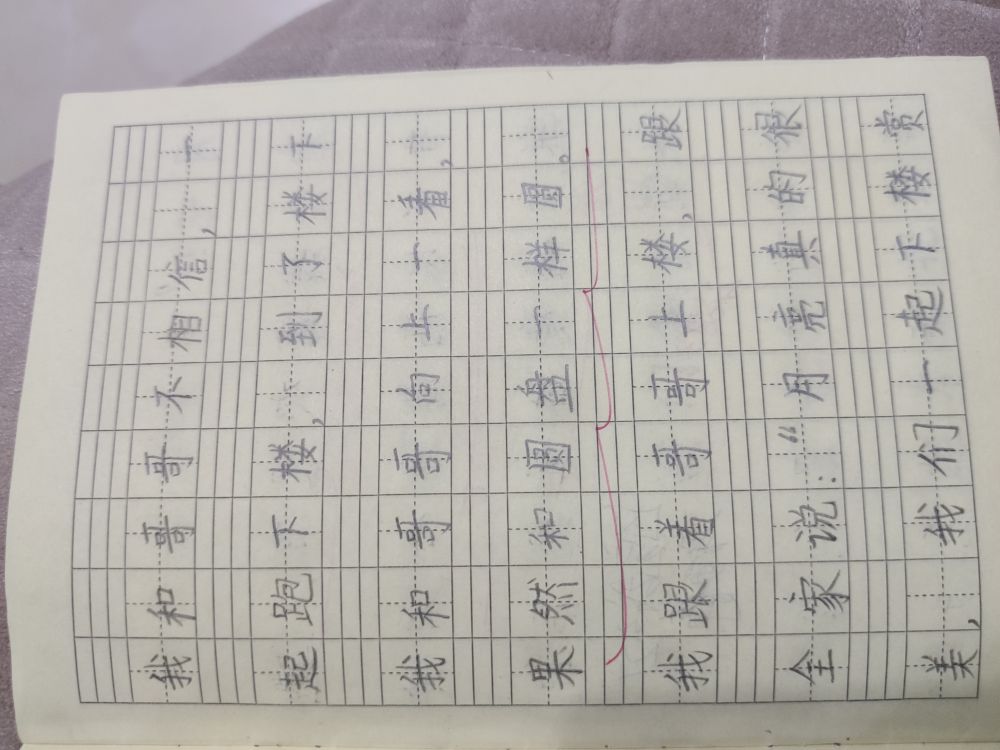 我和哥哥不相信,一
起跑下楼,到了楼下
我和哥哥向上一看,
果然和圆盘一样圆。
我跟着哥哥上楼,跟
全家说:“用亮真的很
美,我们一起下楼赏